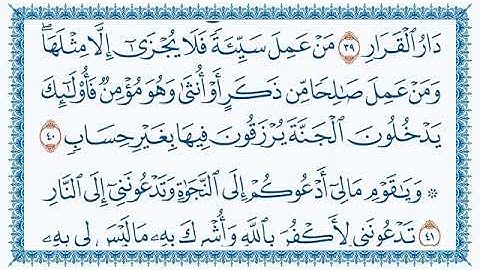 دَارُ ٱلْقَرَارِ ٣٩ مَنْ عَمِلَ سَيِّئَةً فَلَا يُجْزَىٰٓ إِلَّا مِثْلَهَا ۖ
وَمَنْ عَمِلَ صَٰلِحًا مِّن ذَكَرٍ أَوْ أُنثَىٰ وَهُوَ مُؤْمِنٌ فَأُو۟لَٰٓئِكَ
يَدْخُلُونَ ٱلْجَنَّةَ يُرْزَقُونَ فِيهَا بِغَيْرِ حِسَابٍ ٤٠
۞ وَيَٰقَوْمِ مَالِىٓ أَدْعُوكُمْ إِلَى ٱلنَّجَوٰةِ وَتَدْعُونَنِىٓ إِلَى ٱلنَّارِ
٤١ تَدْعُونَنِى لِأَكْفُرَ بِٱللَّهِ وَأُشْرِكَ بِهِۦ مَا لَيْسَ لِى بِهِۦ